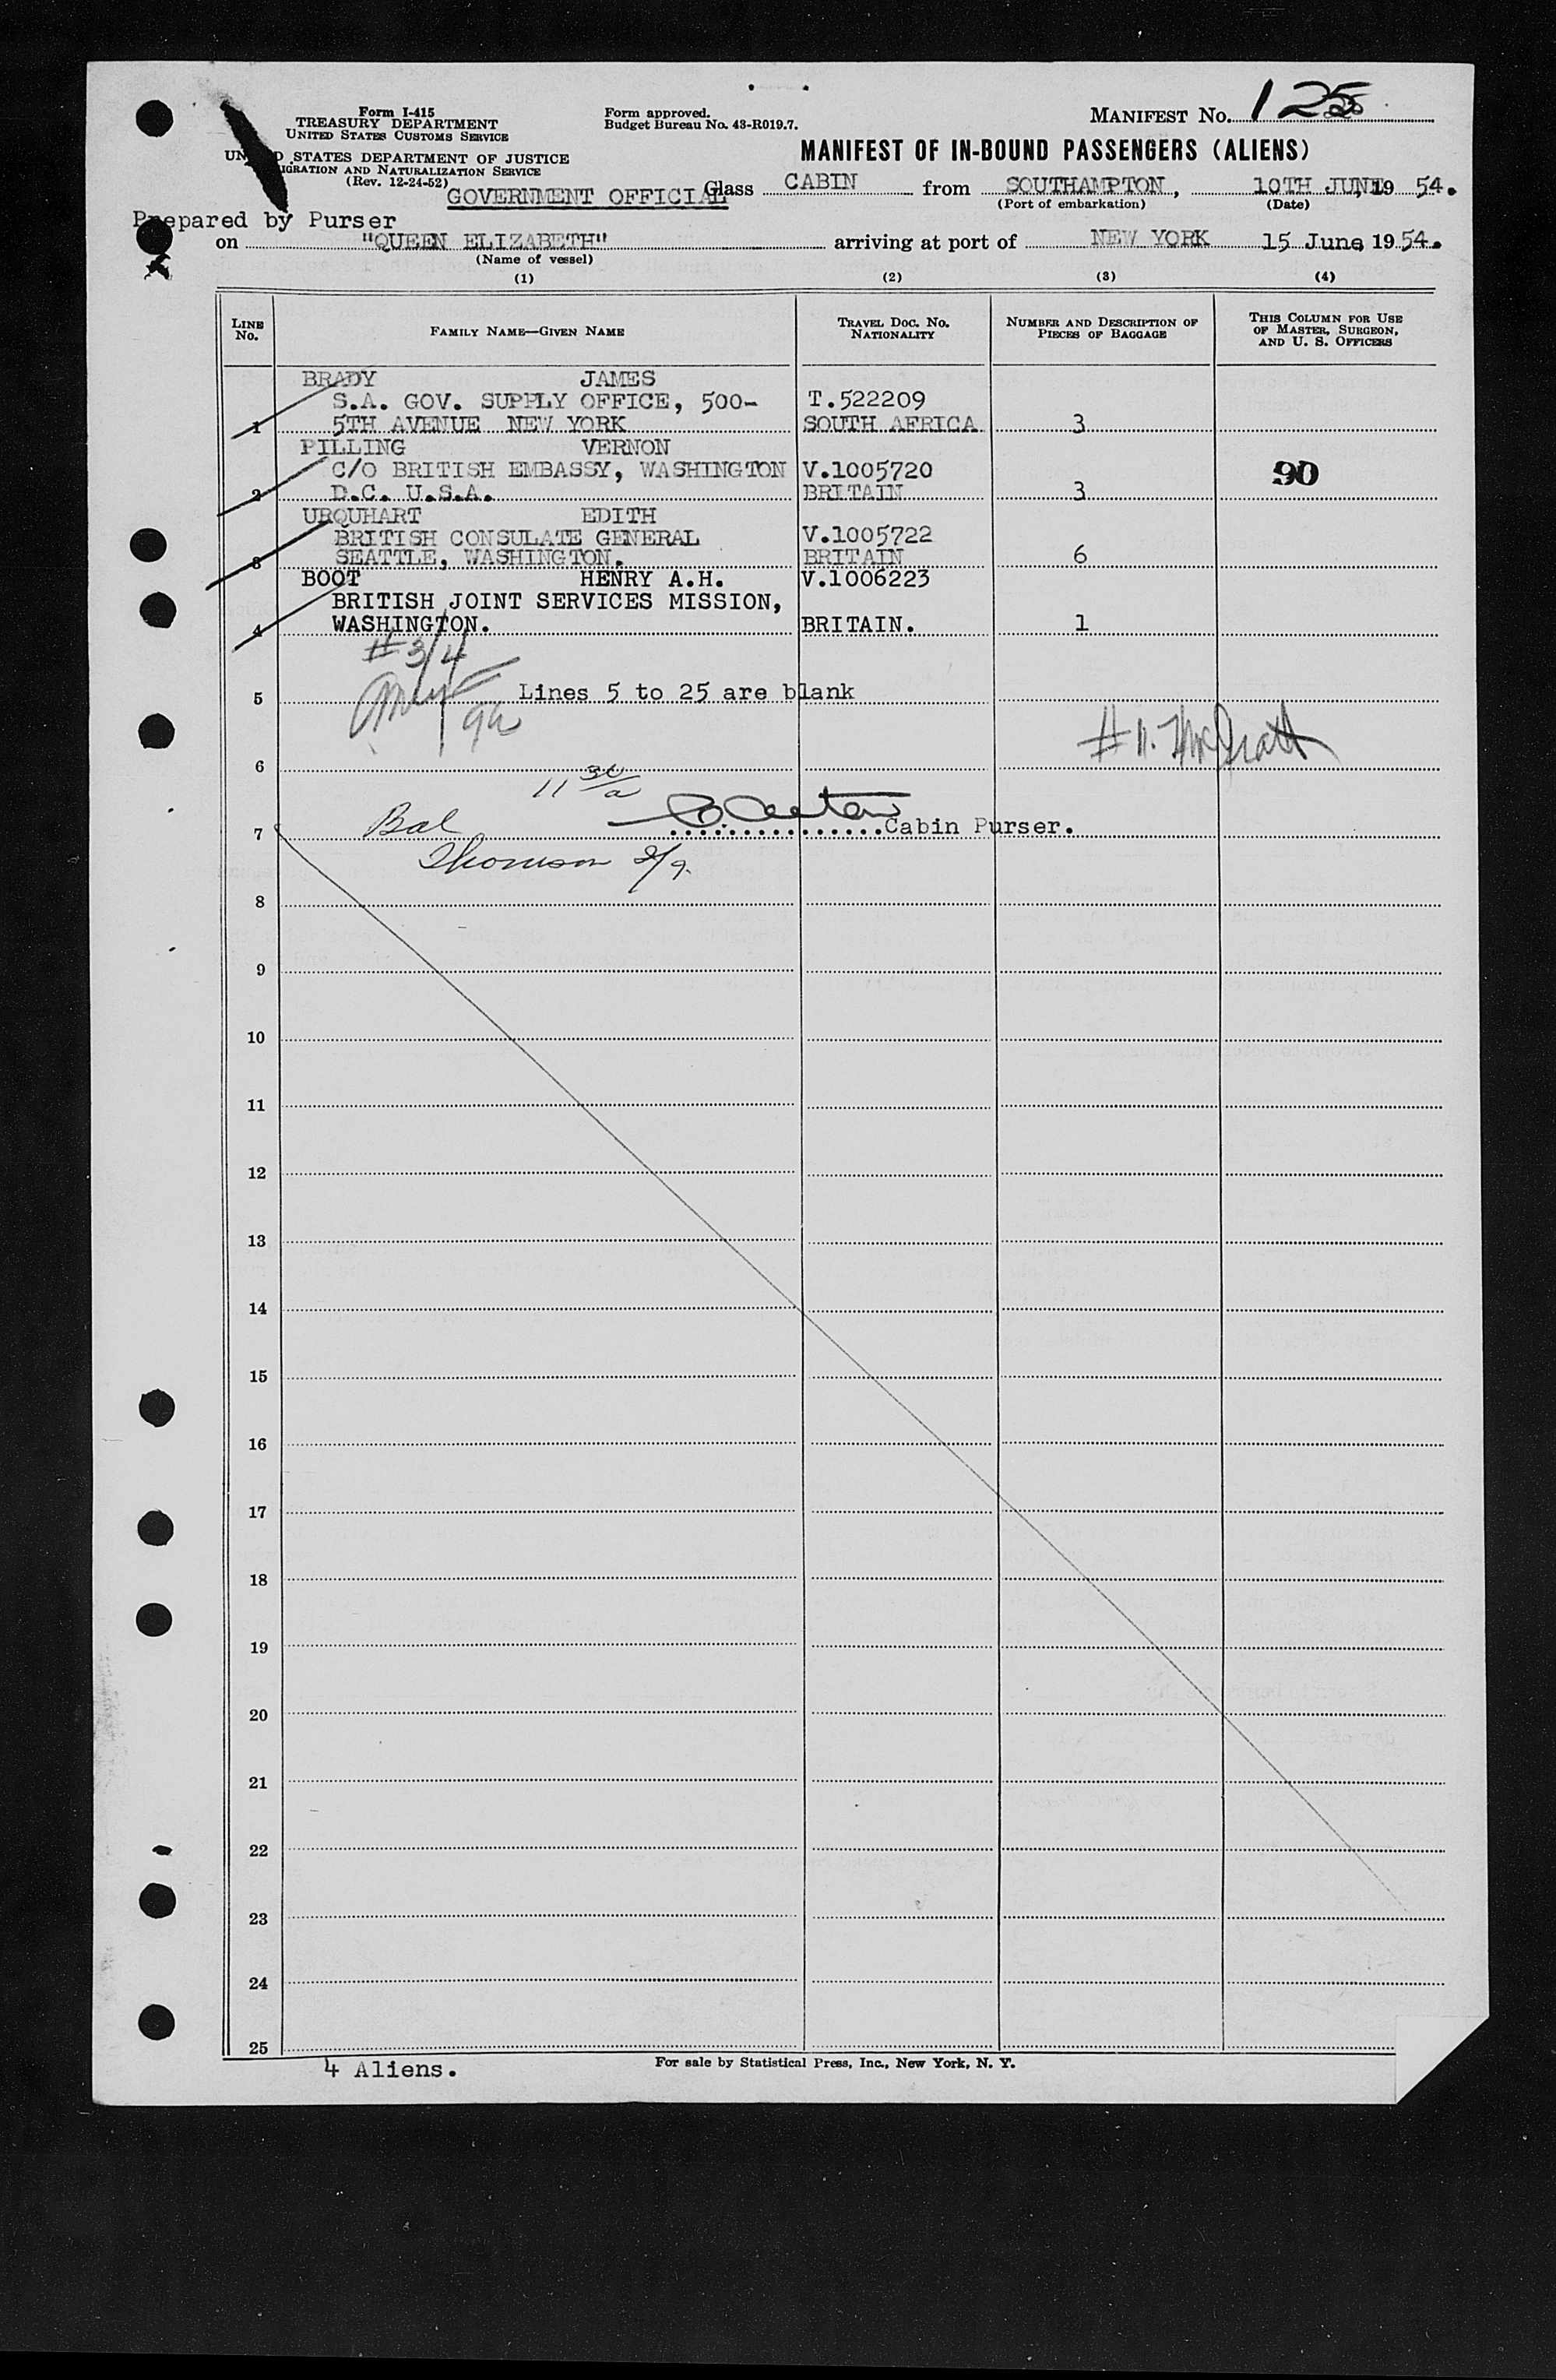 Form I-415
TREASURY DEPARTMENT
UNITED STATES CUSTOMS SERVICE
STATES DEPARTMENT OF JUSTICE
AND NATURALIZATION SERVICE
(Rev. 12-24-52)
Form approved.
Budget Bureau No. 43-R019.7.
MANIFEST No. 125
MANIFEST OF IN-BOUND PASSENGERS (ALIENS)
GOVERNMENT OFFICIAL
Class CABIN from SOUTHAMPTON, 10TH JUNE 19 54.
(Port of embarkation) (Date)
Prepared by Purser
on "QUEEN ELIZABETH" arriving at port of NEW YORK 15 June, 19 54.
(Name of vessel)
(1) (2) (3) (4)
LINE No. FAMILY NAME—GIVEN NAME TRAVEL DOC. NO. NATIONALITY NUMBER AND DESCRIPTION OF PIECES OF BAGGAGE THIS COLUMN FOR USE OF MASTER, SURGEON, AND U. S. OFFICERS
BRADY JAMES
S.A. GOV. SUPPLY OFFICE, 500- T.522209
1 5TH AVENUE NEW YORK SOUTH AFRICA 3
PILLING VERNON
C/O BRITISH EMBASSY, WASHINGTON V.1005720 90
2 D.C. U.S.A. BRITAIN 3
URQUHART EDITH
BRITISH CONSULATE GENERAL V.1005722
3 SEATTLE, WASHINGTON. BRITAIN 6
BOOT HENRY A.H. V.1006223
BRITISH JOINT SERVICES MISSION,
4 WASHINGTON. BRITAIN. 1
#3/4
5 Lines 5 to 25 are blank
#11. McGrath
6
11 30/a
7 Bal Cabin Purser.
Thomson
8
9
10
11
12
13
14
15
16
17
18
19
20
21
22
23
24
25
4 Aliens.
For sale by Statistical Press, Inc., New York, N. Y.